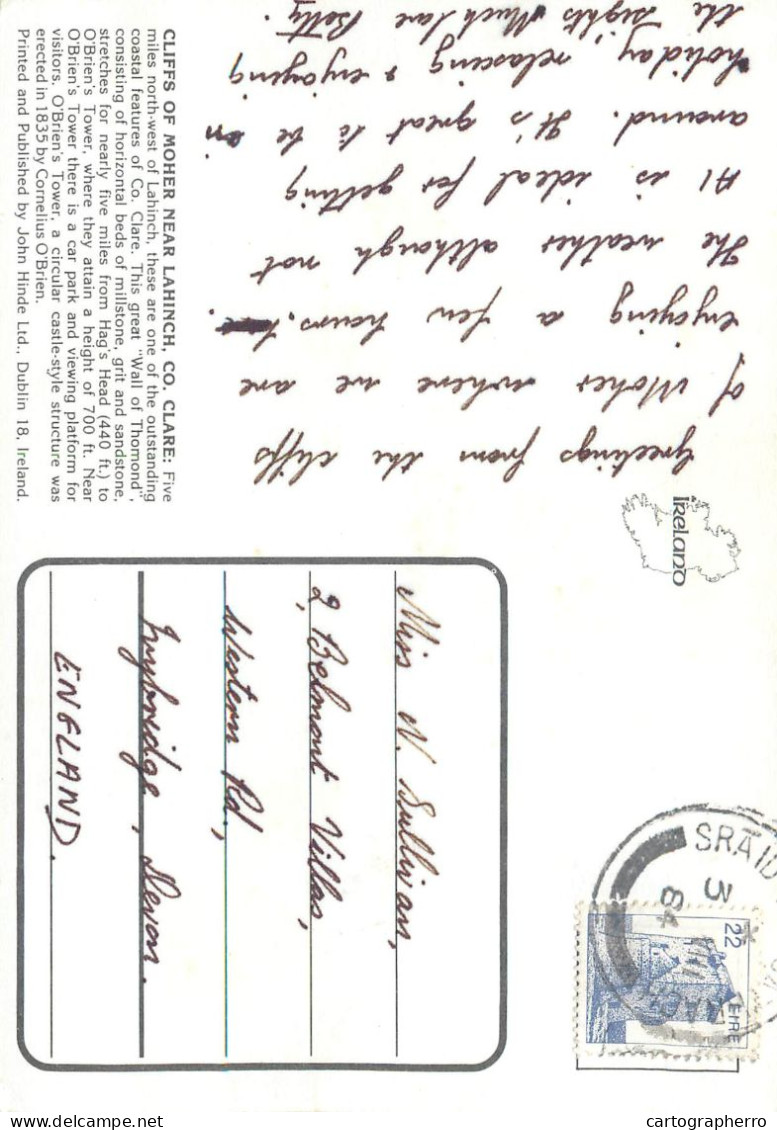 CLIFFS OF MOHER NEAR LAHINCH, CO. CLARE: Five
miles north-west of Lahinch, these are one of the outstanding
coastal features of Co. Clare. This great "Wall of Thomond",
consisting of horizontal beds of millstone, grit and sandstone,
stretches for nearly five miles from Hag's Head (440 ft.) to
O'Brien's Tower, where they attain a height of 700 ft. Near
O'Brien's Tower there is a car park and viewing platform for
visitors. O'Brien's Tower, a circular castle-style structure was
erected in 1835 by Cornelius O'Brien.
Printed and Published by John Hinde Ltd., Dublin 18, Ireland.
Greetings from the cliffs
of Moher where we are
enjoying a few hours.
The weather although not
A1 is ideal for getting
around. It's great to be on
holiday, relaxing & enjoying
the sights Much love Betty.
IRELAND
Miss N. Sullivan,
2, Belmont Villas,
Western Rd.,
Ivybridge, Devon.
ENGLAND.
SRAID
3
84
22
EIRE
cartographerro
delcampe.net